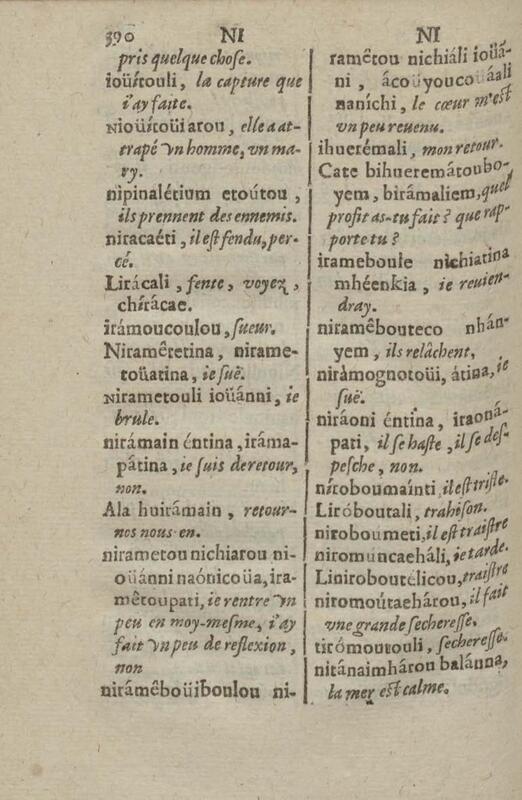 390
NI
NI
pris quelque chose.
ioüítouli, la capture que
i'ay faite.
Nioüítoüiarou, elle a at-
trapé vn homme, vn ma-
ry.
nipinalétium etoútou,
ils prennent des ennemis.
niracaéti, il est fendu, per-
cé.
Lirácali, fente, voyez,
chirácae.
irámoucoulou, sueur.
Niramêretina, nirame-
toüatina, ie suë.
Nirametouli ioüánni, ie
brule.
nirámain éntina, iráma-
pátina, ie suis de retour,
non.
Ala huirámain, retour-
nos nous-en.
nirametou nichiarou ni-
oüánni naónicoüa, ira-
mêtoupati, ie rentre vn
peu en moy-mesme, i'ay
fait vn peu de reflexion,
non
nirámêboüiboulou ni-
ramêtou nichiáli ioüá-
ni, ácoüyoucoüáali
naníchi, le cœur m'est
vn peu reuenu.
ihuerémali, mon retour.
Cate bihueremátoubo-
yem, birâmaliem, quel
profit as-tu fait? que rap-
porte tu?
irameboule nichiatina
mhéenkia, ie reuien-
dray.
niramêbouteco nhán-
yem, ils relâchent,
nirámognotoüi, átina, ie
suë.
niráoni éntina, iraoná-
pati, il se haste, il se des-
pesche, non.
níroboumaínti, il est triste.
Liróboutali, trahison.
niroboumeti, il est traistre
niromuncaeháli, ie tarde.
Liniroboutélicou, traistre
niromoútaehárou, il fait
vne grande secheresse.
tirómoutouli, secheresse.
nitánaimhárou balánna,
la mer est calme.